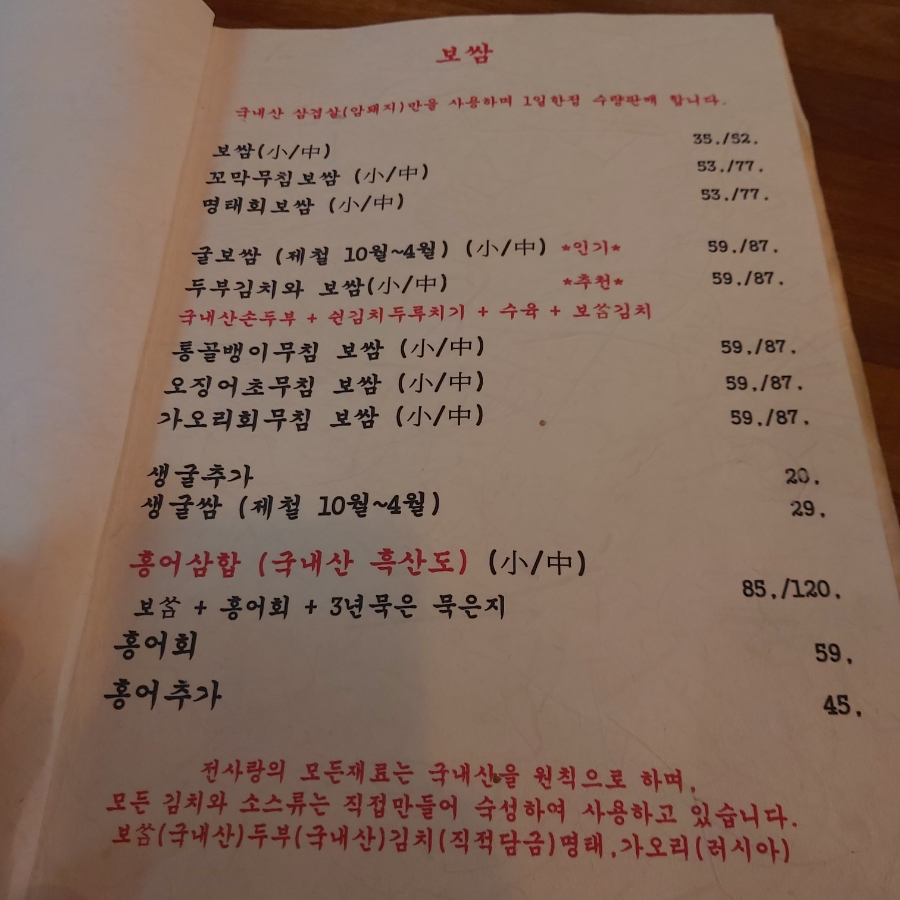 보쌈
국내산 삼겹살(암돼지)만을 사용하며 1일한점 수량판매 합니다.
보쌈(小/中) 35./52.
꼬막무침보쌈 (小/中) 53./77.
명태회보쌈 (小/中) 53./77.
굴보쌈 (제철 10월~4월) (小/中) *인기* 59./87.
두부김치와 보쌈(小/中) *추천* 59./87.
국내산손두부 + 쉰김치두루치기 + 수육 + 보쌈김치
통골뱅이무침 보쌈 (小/中) 59./87.
오징어초무침 보쌈 (小/中) 59./87.
가오리회무침 보쌈 (小/中) 59./87.
생굴추가 20.
생굴쌈 (제철 10월~4월) 29.
홍어삼합 (국내산 흑산도) (小/中) 85./120.
보쌈 + 홍어회 + 3년묵은 묵은지
홍어회 59.
홍어추가 45.
전사랑의 모든재료는 국내산을 원칙으로 하며,
모든 김치와 소스류는 직접만들어 숙성하여 사용하고 있습니다.
보쌈(국내산)두부(국내산)김치(직적담금)명태,가오리(러시아)